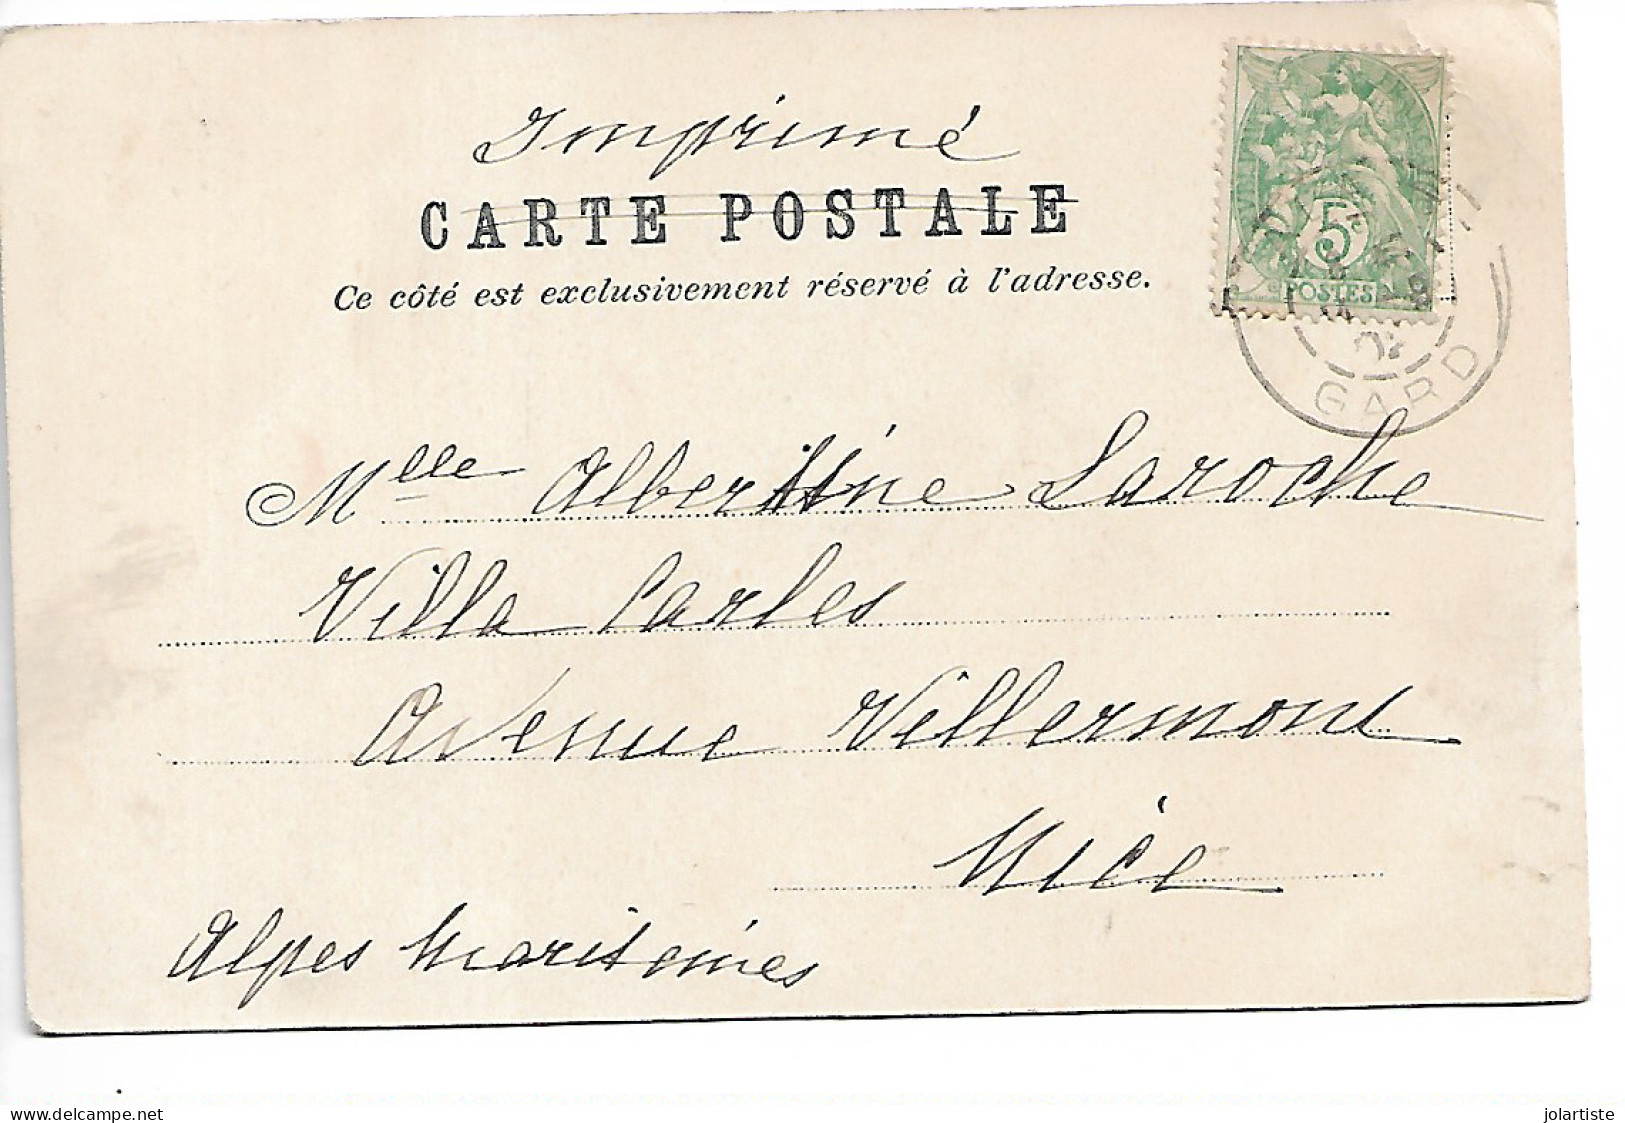 Imprimé
CARTE POSTALE
Ce côté est exclusivement réservé à l'adresse.
5c
POSTES
GARD
Mlle Albertine Laroche
Villa Carles
Avenue Villermont
Nice
Alpes Maritimes
www.delcampe.net
jolartiste